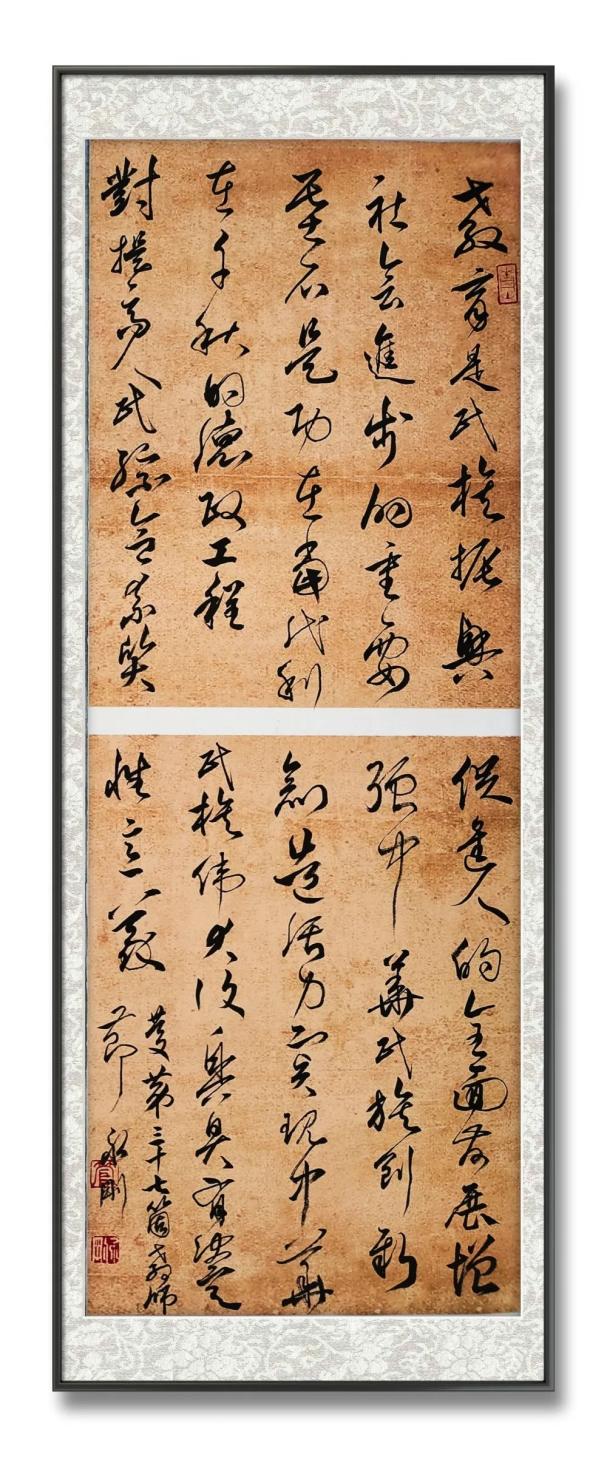 教育是民族振興
社會進步的重要
基石是功在當代利
在千秋的德政工程
對提高人民綜合素質
促進人的全面發展增
強中華民族創新
創造活力實現中華
民族伟大復興具有決定
性意義
慶第三十七箇教師
節 永剛